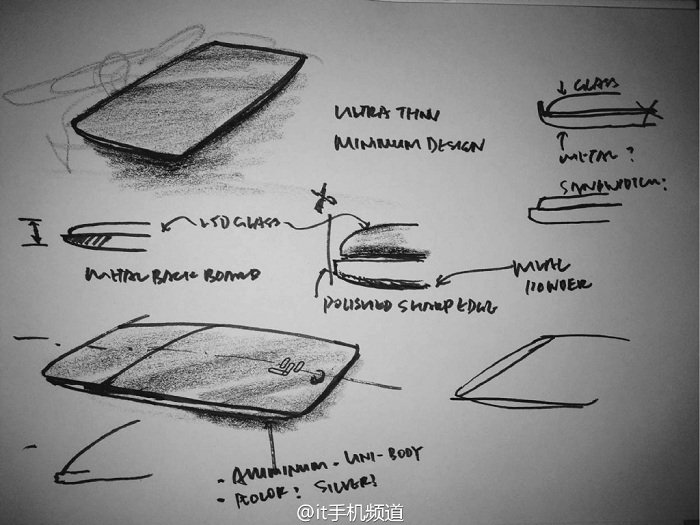 ULTRA THIN
MINIMUM DESIGN
GLASS
METAL?
SANDWITCH?
GLASS
METAL BACK BOARD
POLISHED SHARP EDGE
METAL
POWDER
- ALUMINUM - UNI-BODY
- COLOR? SILVER?
@it手机频道